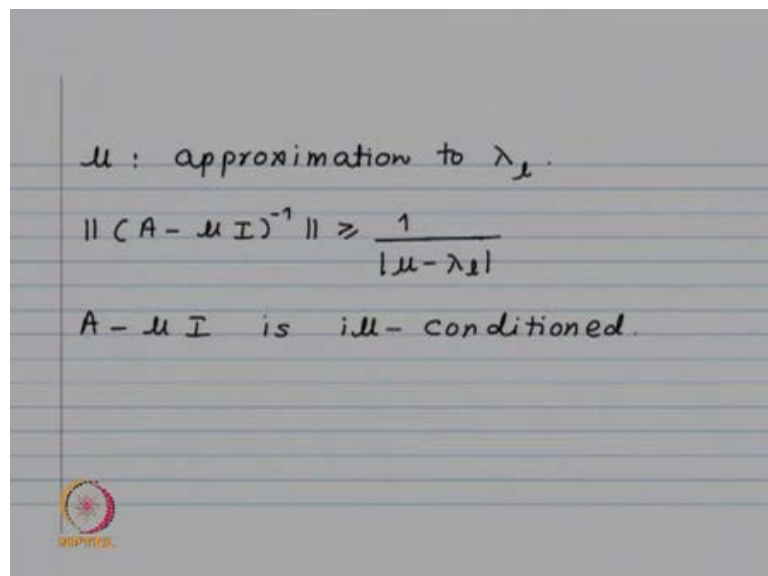 μ : approximation to λ_l.
|| (A - μ I)^{-1} || ≥ 1 / |μ - λ_l|
A - μ I is ill-conditioned.
NPTEL